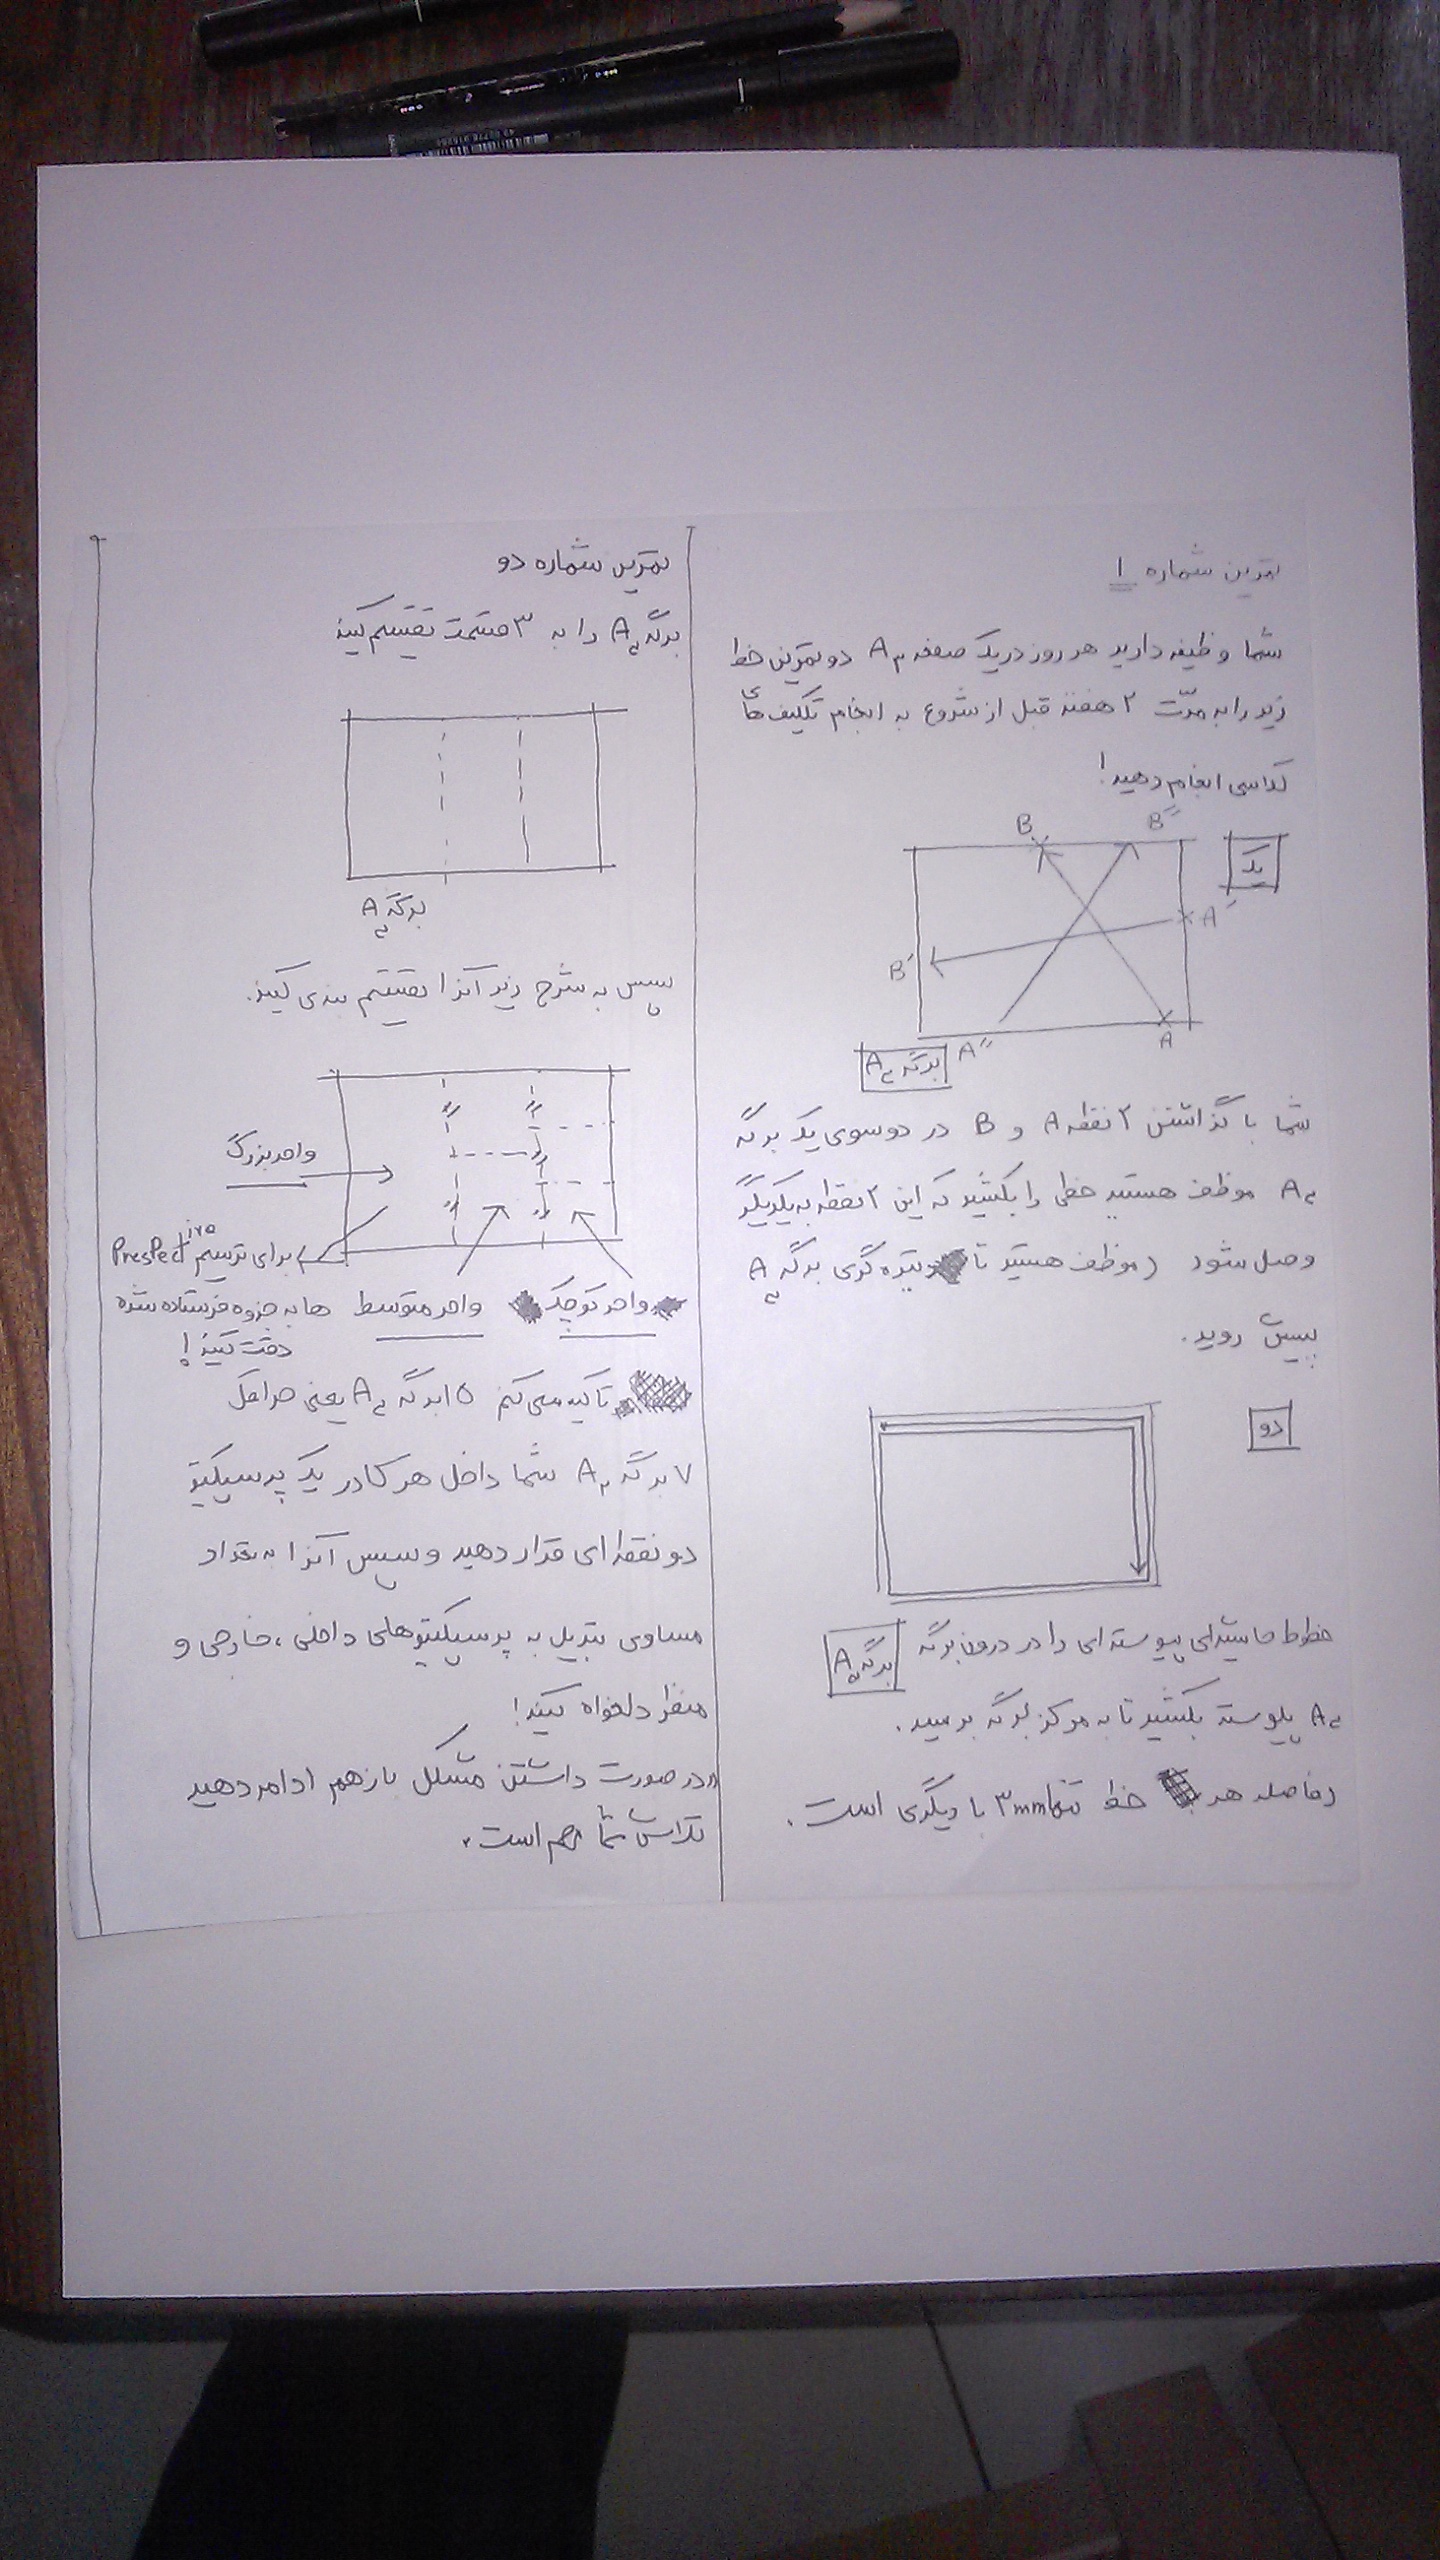 تمرین شماره ۱
شما وظیفه دارید هر روز در یک صفحه A۳ دو تمرین خط
زیر را به مدّت ۲ هفته قبل از شروع به انجام تکلیف‌های
کلاسی انجام دهید!
یک
B
B″
A′
B′
A″
A
برگه A۴
شما با گذاشتن ۲ نقطه A و B در دو سوی یک برگه
A۴ موظف هستید خطی را بکشید که این ۲ نقطه به یکدیگر
وصل شود (موظف هستید تا تیره گری برگه A۴
پیش روید.
دو
خطوط حاشیه‌ای پیوسته‌ای را در درون برگه
برگه A۴
A۴ پیوسته بکشید تا به مرکز برگه برسید.
(فاصله هر خط تنها ۳mm با دیگری است.
تمرین شماره دو
برگه A۴ را به ۳ قسمت تقسیم کنید
برگه A۴
سپس به شرح زیر آنرا تقسیم بندی کنید.
واحد بزرگ
برای ترسیم Prespective
واحد کوچک واحد متوسط ها به جزوه فرستاده شده
دقت کنید!
تاکید می‌کنم ۱۵ برگه A۴ یعنی حداقل
۷ برگه A۳ شما داخل هر کادر یک پرسپکتیو
دو نقطه ای قرار دهید و سپس آنرا به تعداد
مساوی تبدیل به پرسپکتیوهای داخلی، خارجی و
منظر دلخواه کنید!
"در صورت داشتن مشکل بازهم ادامه دهید
تلاش شما مهم است.